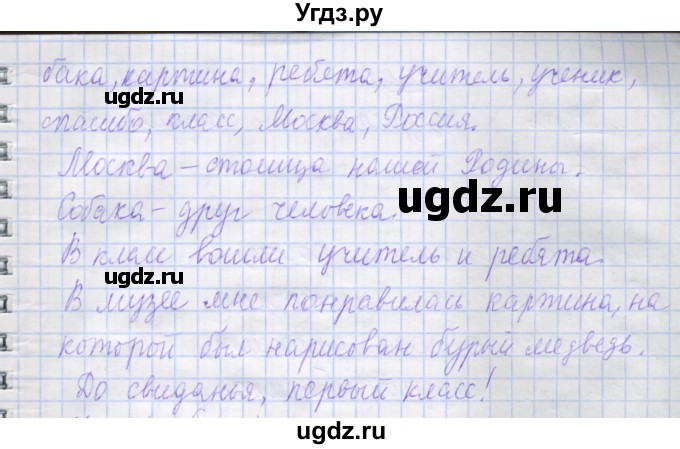 Угдз.ру
бака, картина, ребета, учитель, ученик,
ugdz.ru
ugdz.ru
спасибо, класс, Москва, Россия.
Москва – столица нашей Родины.
ugdz.ru
Собака – друг человека.
ugdz.ru
ugdz.ru
В класс вошли учитель и ребята.
В музее мне понравилась картина, на
которой был нарисован бурый медведь.
ugdz.ru
ugdz.ru
До свиданья, первый класс!
ugdz.ru